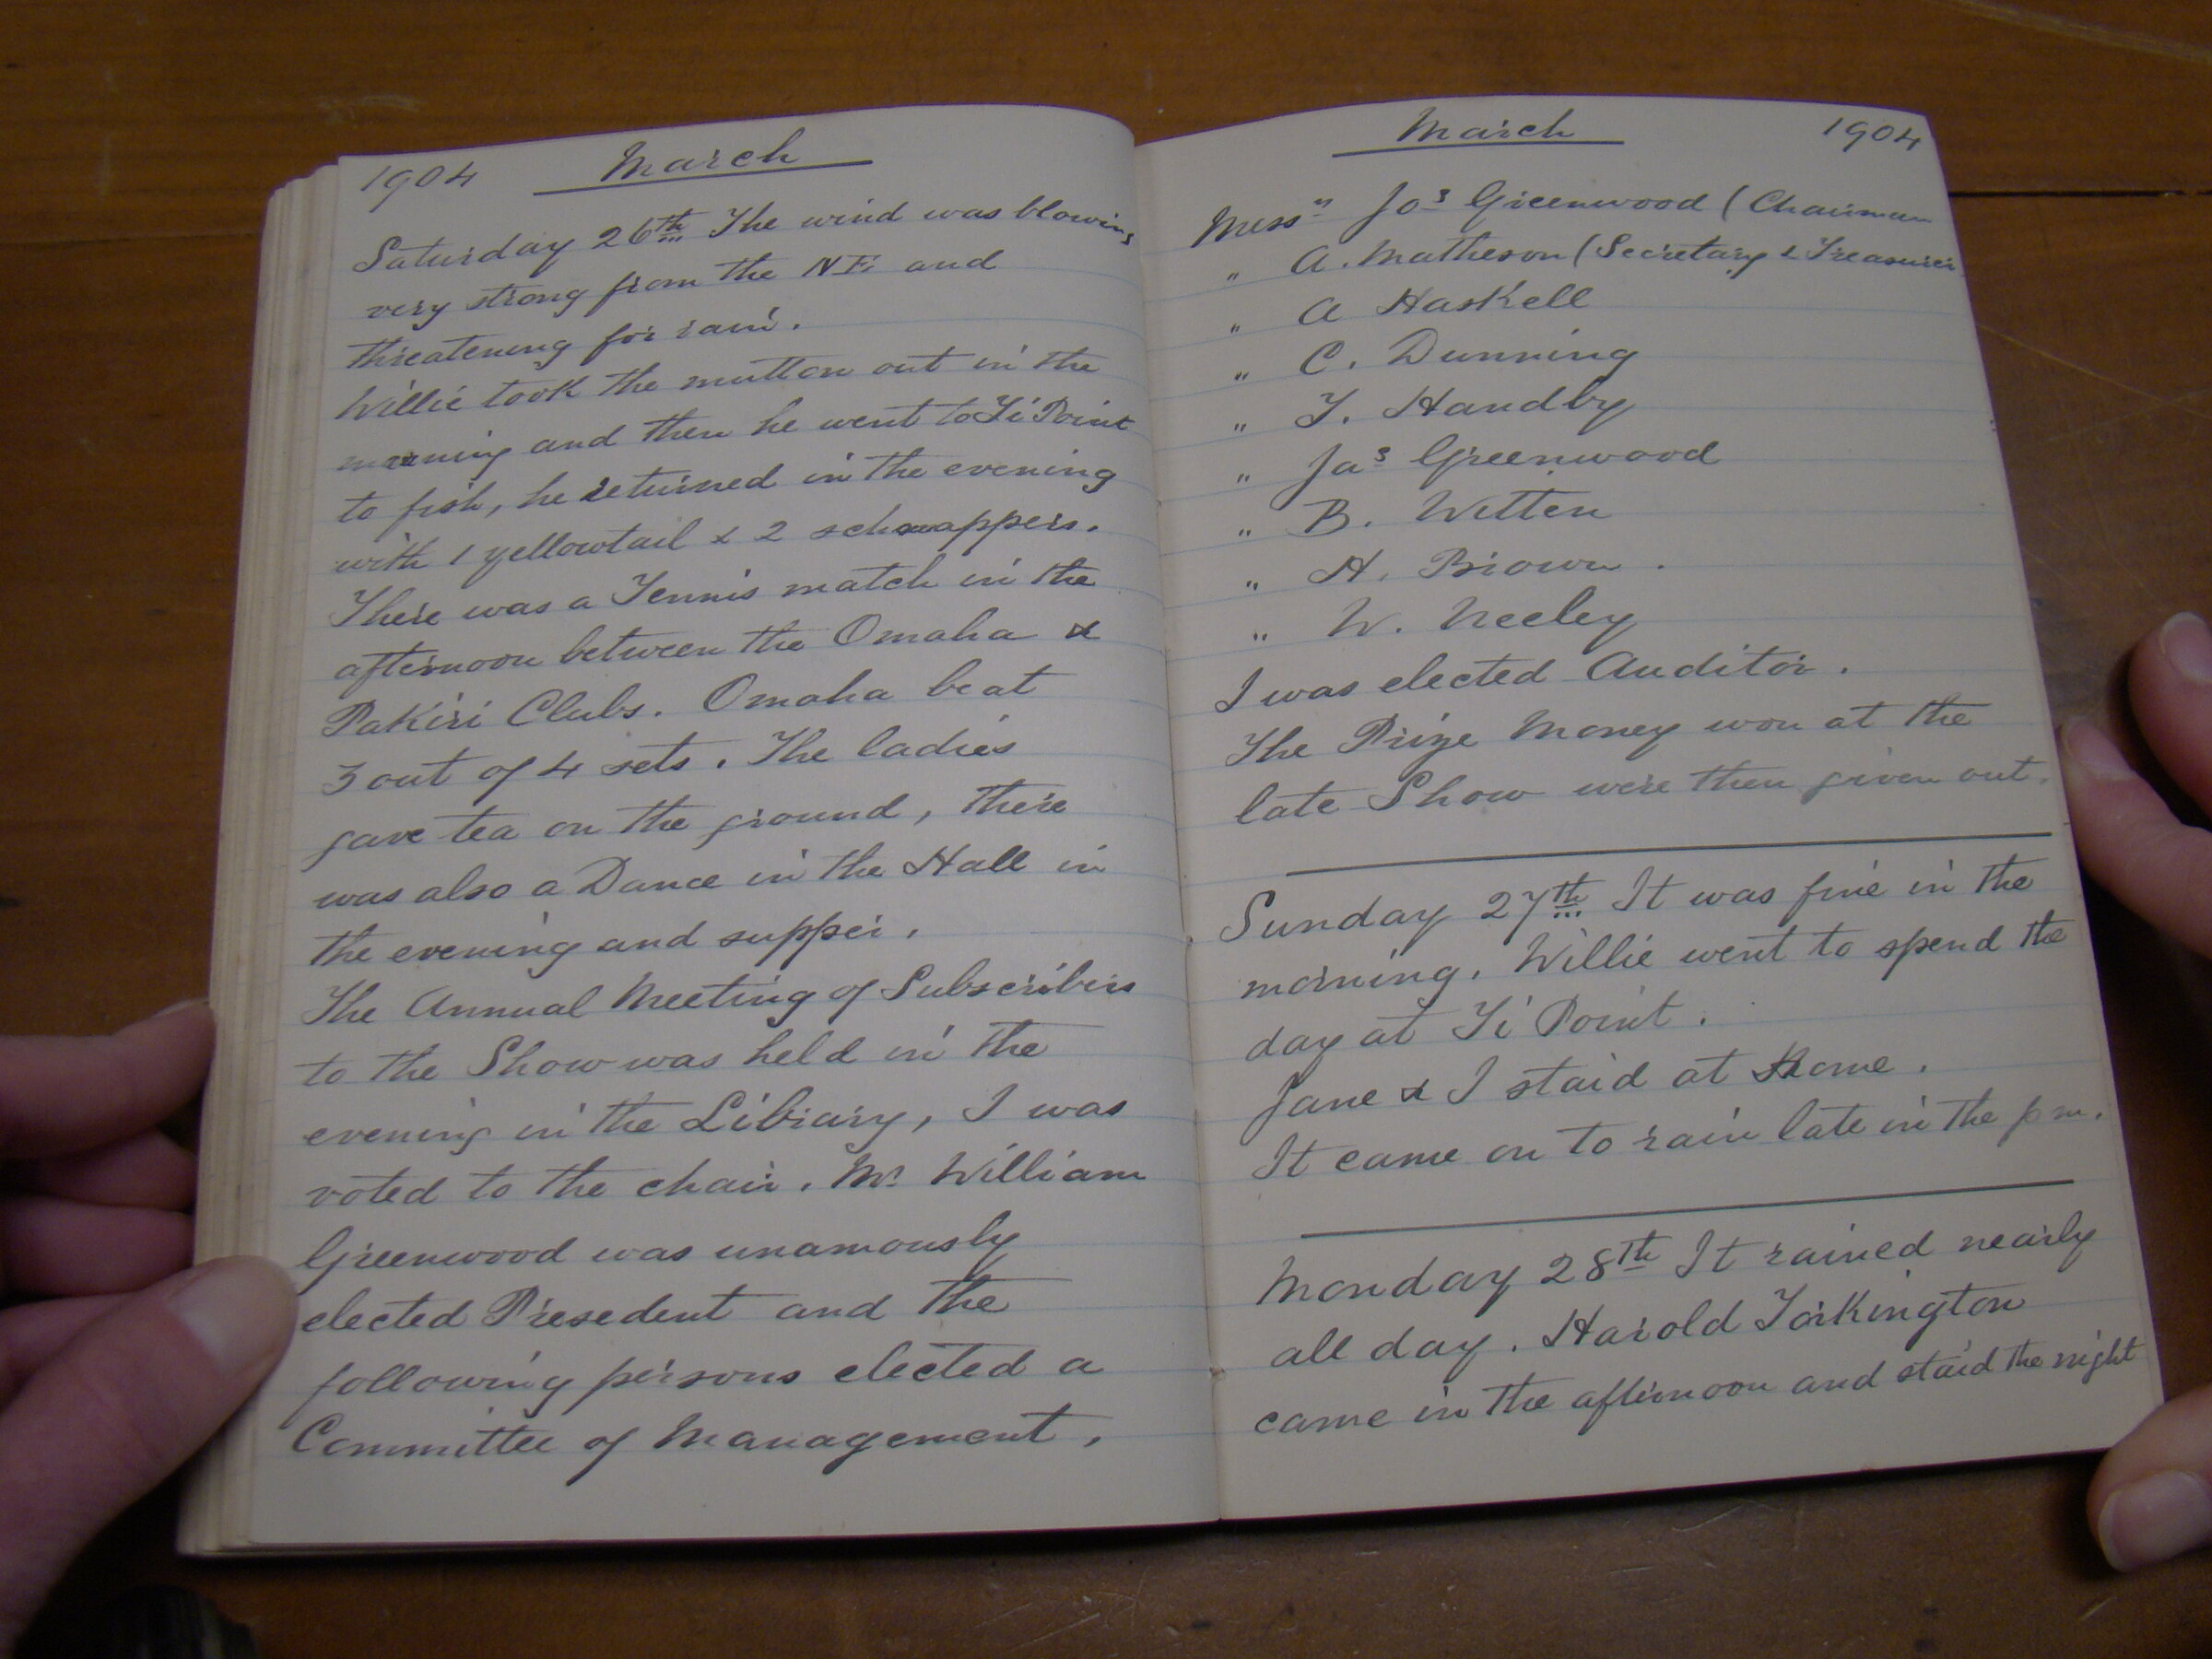 1904 March
Saturday 26th The wind was blowing
very strong from the NE and
threatening for rain.
Willie took the mutton out in the
morning and then he went to Ti Point
to fish, he returned in the evening
with 1 yellowtail & 2 schnappers.
There was a Tennis match in the
afternoon between the Omaha &
Pakiri Clubs. Omaha beat
3 out of 4 sets. The ladies
gave tea on the ground, there
was also a Dance in the Hall in
the evening and supper.
The Annual Meeting of Subscribers
to the Show was held in the
evening in the Library, I was
voted to the chair. Mr William
Greenwood was unamously
elected Presedent and the
following persons elected a
Committee of Management,
March 1904
Messrs Jos Greenwood (Chairman
" A. Matheson (Secretary & Treasurer
" A Haskell
" C. Dunning
" T. Handby
" Jas Greenwood
" B. Witten
" H. Brown.
" W. Neeley
I was elected Auditor.
The Prize Money won at the
late Show were then given out.
Sunday 27th It was fine in the
morning. Willie went to spend the
day at Ti Point.
Jane & I staid at Home.
It came on to rain late in the pm.
Monday 28th It rained nearly
all day. Harold Torkington
came in the afternoon and staid the night